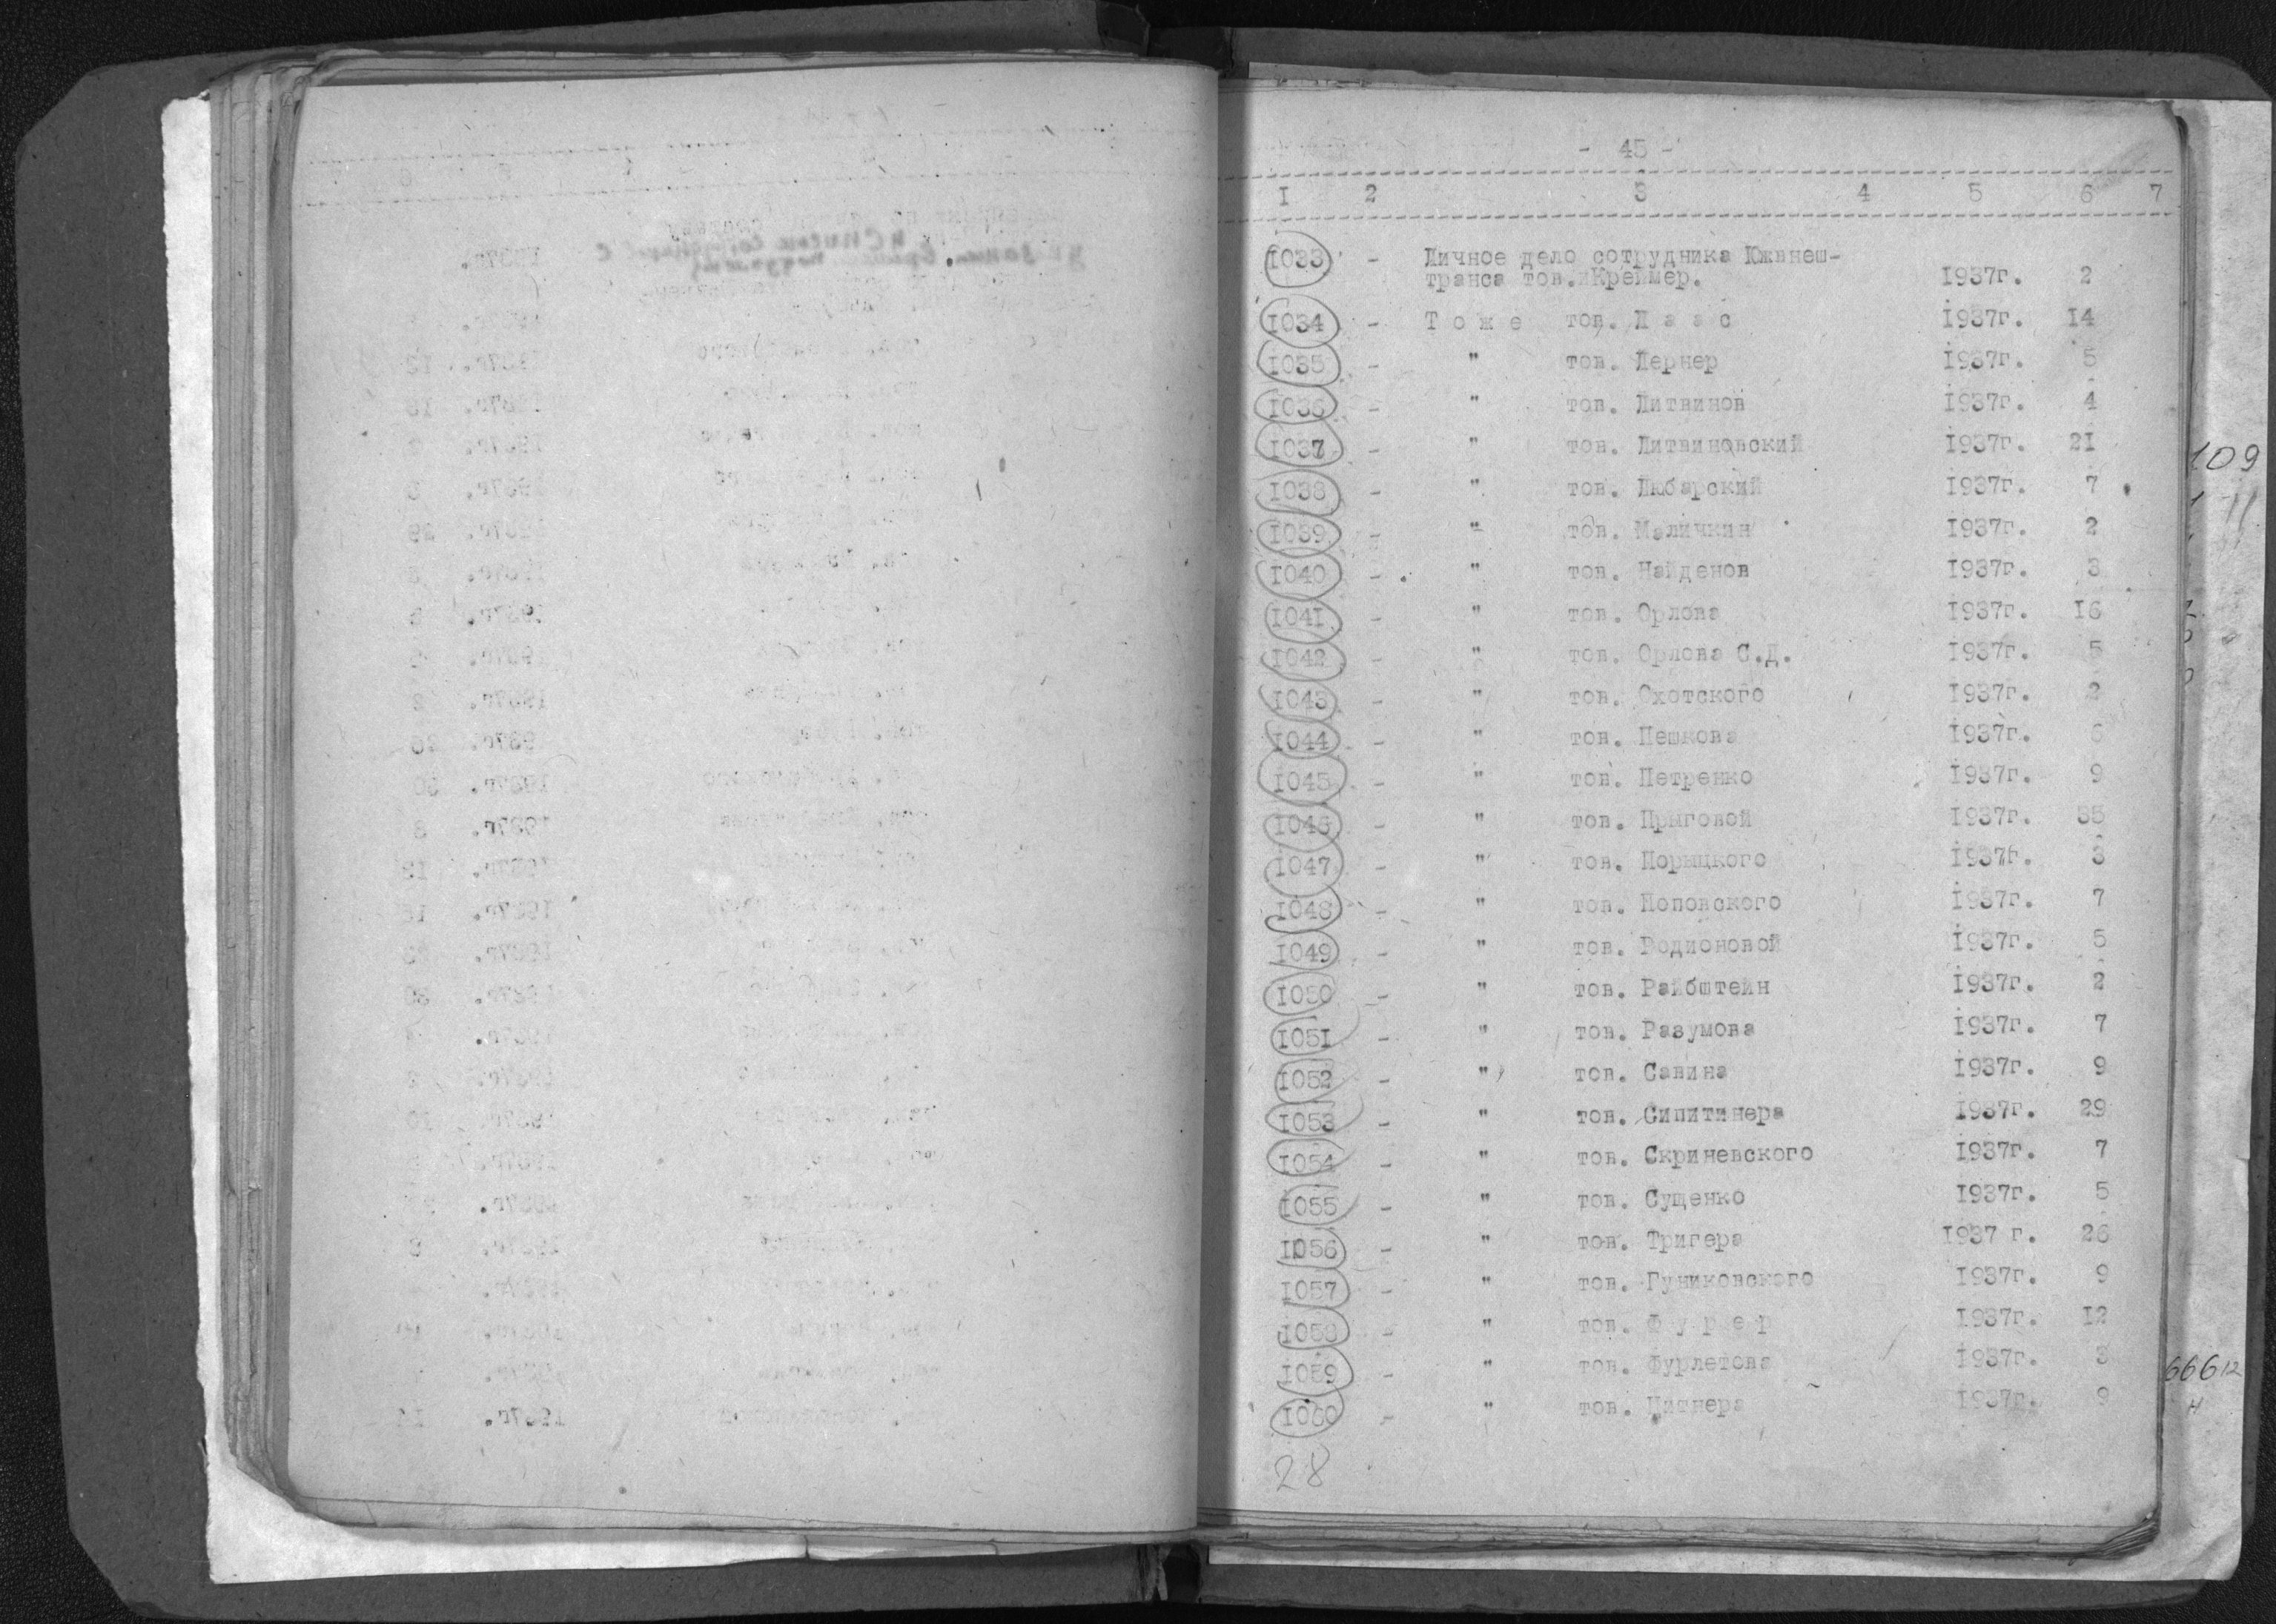 - 45 -
I 2 3 4 5 6 7
1033 - Личное дело сотрудника Южвнеш-
транса тов. Креймер. 1937г. 2
1034 - Т о ж е тов. Л а а с 1937г. 14
1035 - " тов. Лернер 1937г. 5
1036 - " тов. Литвинов 1937г. 4
1037 - " тов. Литвиновский 1937г. 21
1038 - " тов. Любарский 1937г. 7
1039 - " тов. Маличкин 1937г. 2
1040 - " тов. Найденов 1937г. 3
1041 - " тов. Орлова 1937г. 16
1042 - " тов. Орлова С.Д. 1937г. 5
1043 - " тов. Охотского 1937г. 2
1044 - " тов. Пешкова 1937г. 6
1045 - " тов. Петренко 1937г. 9
1046 - " тов. Прыговой 1937г. 35
1047 - " тов. Порицкого 1937г. 3
1048 - " тов. Поповского 1937г. 7
1049 - " тов. Родионовой 1937г. 5
1050 - " тов. Райбштейн 1937г. 2
1051 - " тов. Разумова 1937г. 7
1052 - " тов. Савина 1937г. 9
1053 - " тов. Сипитинера 1937г. 29
1054 - " тов. Скриневского 1937г. 7
1055 - " тов. Сущенко 1937г. 5
1056 - " тов. Тригера 1937 г. 26
1057 - " тов. Гуниковского 1937г. 9
1058 - " тов. 1937г. 12
1059 - " тов. Фурлетова 1937г. 3
1060 - " тов. Цитнера 1937г. 9
28
109
11
666